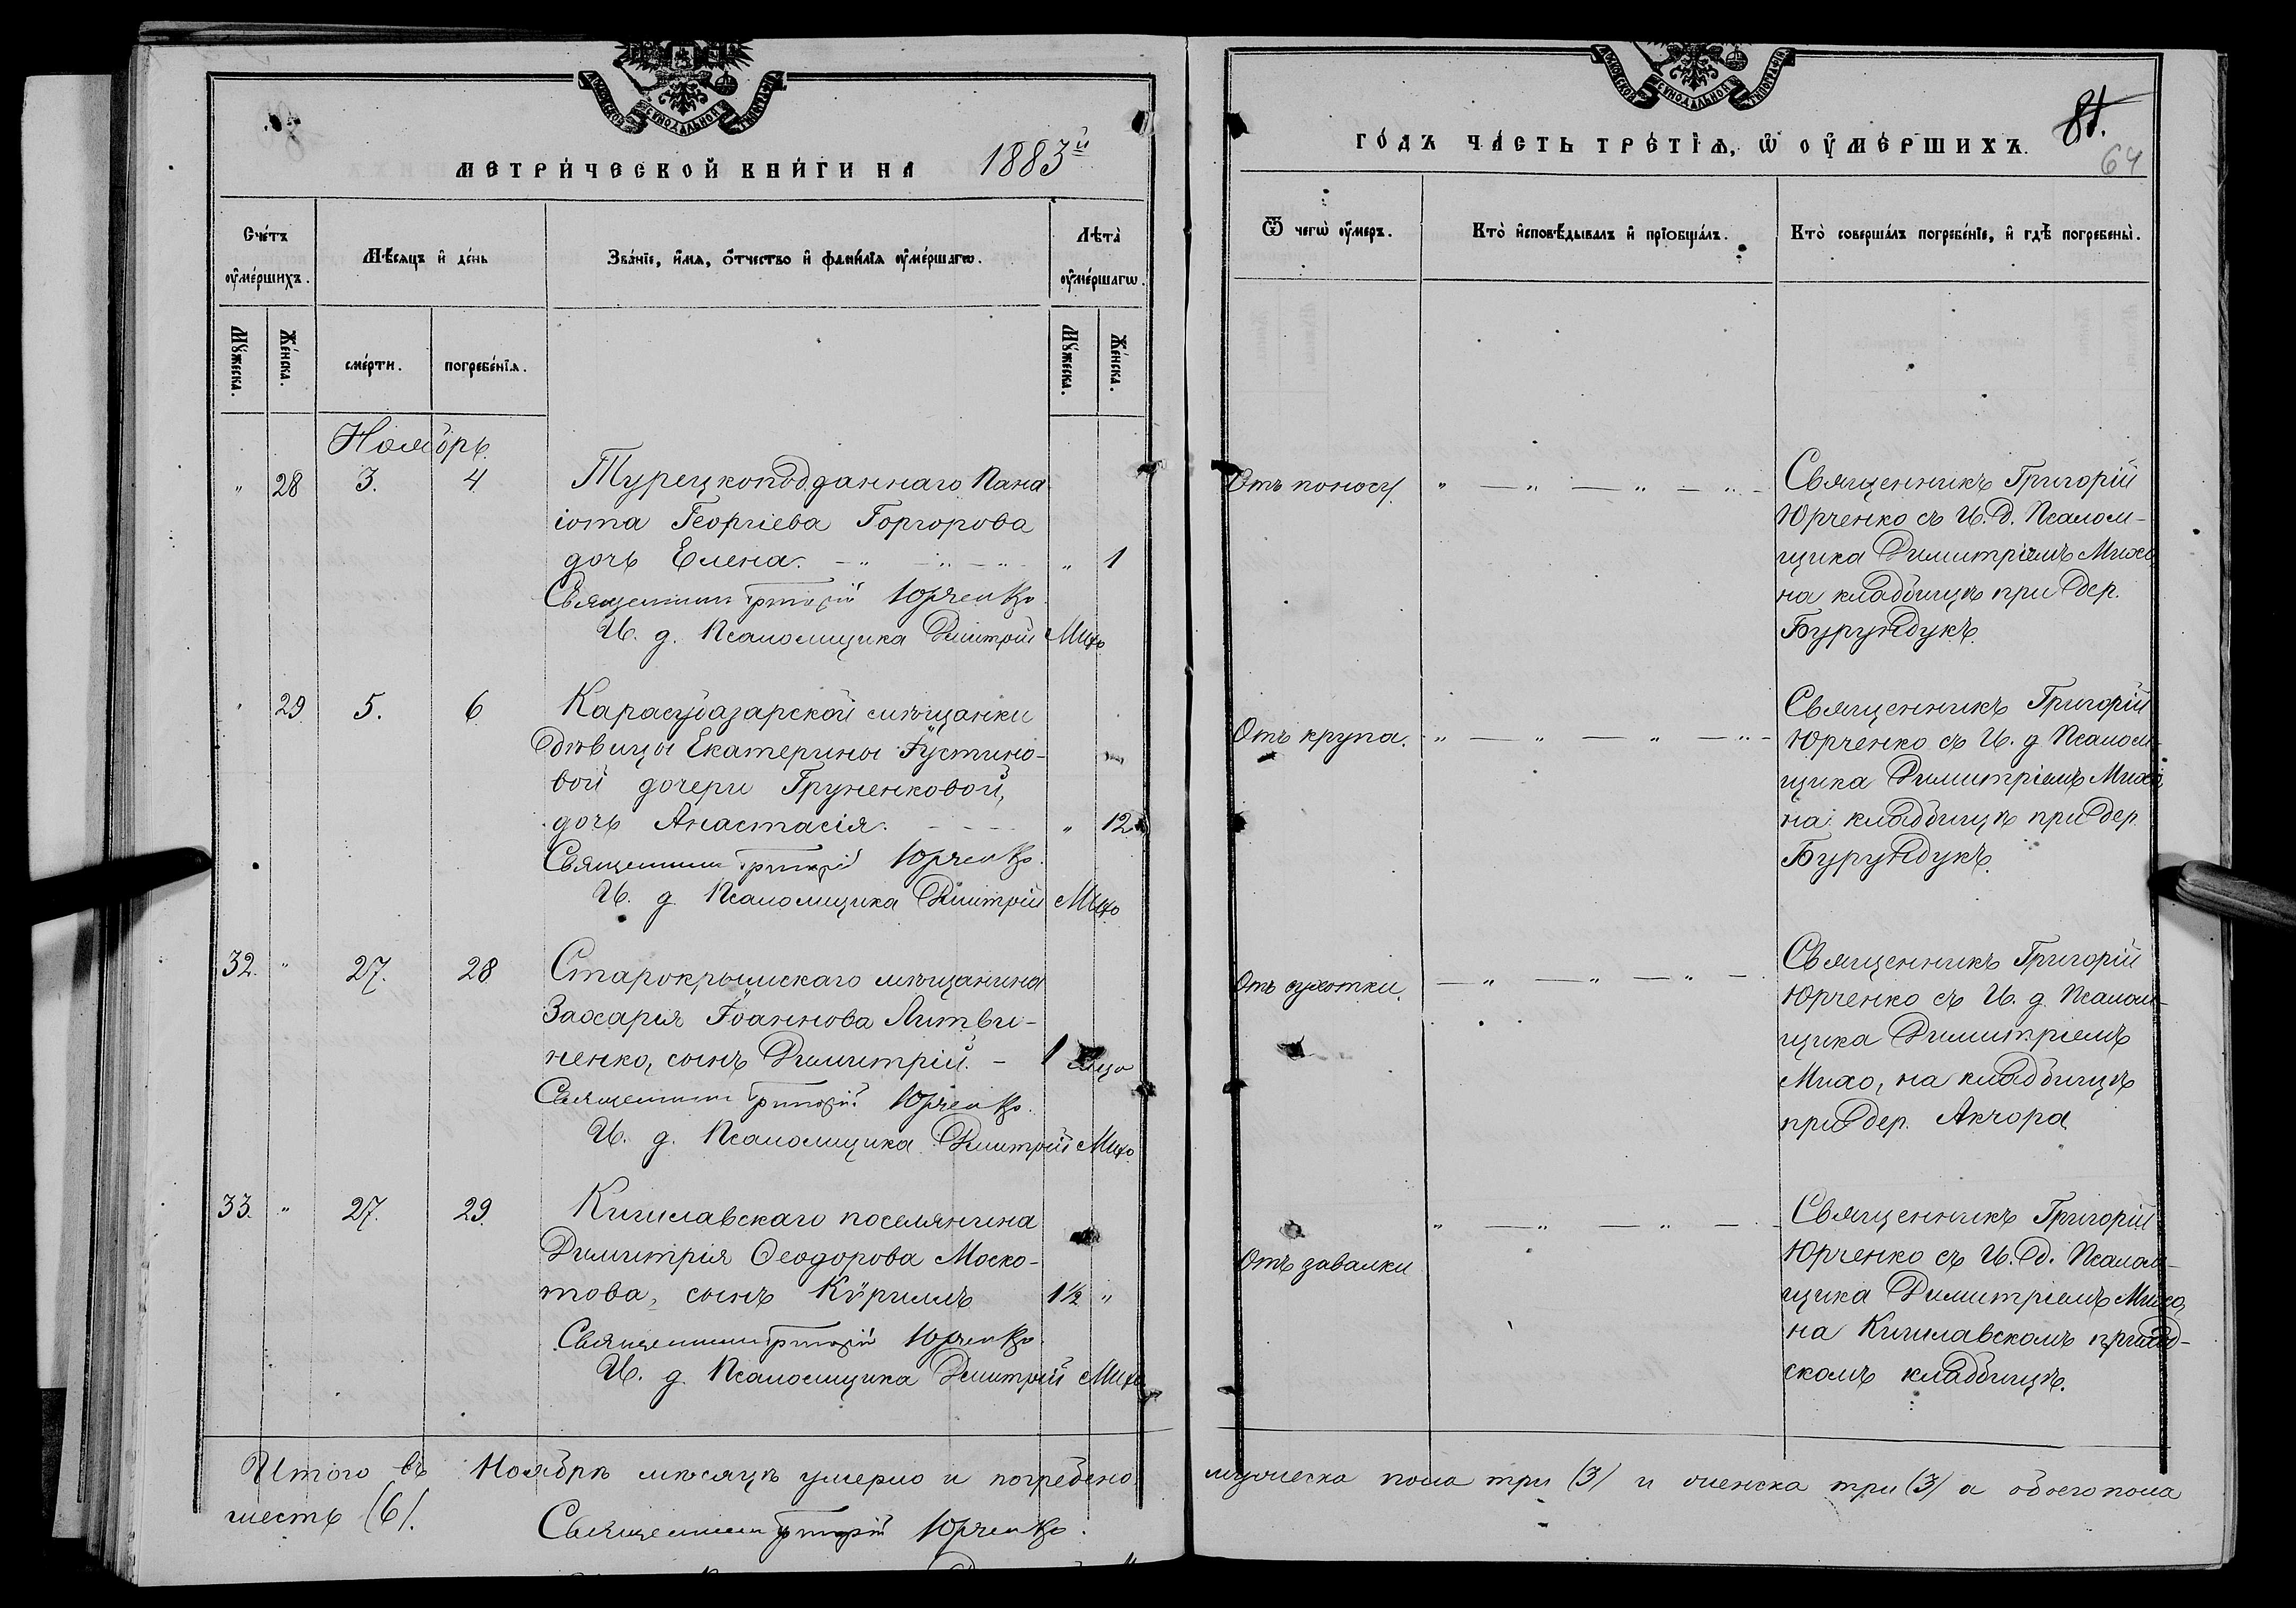 МЕТРИЧЕСКОЙ КНИГИ НА 1883й
Счетъ оумершихъ.
Мѣсяцъ и день
Званіе, имя, отчество и фамилія оумершагω.
Лѣта оумершагω.
Мужеска.
Женска.
смерти.
погребенія.
Мужеска.
Женска.
Ноябрь
" 28 3. 4
Турецкоподданнаго Пана
іота Георгіева Горгорова
дочь Елена. " 1
Священникъ Григорій Юрченко
И. д. Псаломщика Димитрій Михо
" 29 5. 6
Карасубазарской мѣщанки
дѣвицы Екатерины Іустино-
вой дочери Груненковой,
дочь Анастасія. " 12
Священникъ Григорій Юрченко.
И. д. Псаломщика Димитрій Михо
32. " 27. 28
Старокрымскаго мѣщанина
Захарія Іоаннова Литви-
ненко, сынъ Димитрій. - 1
Священникъ Григорій Юрченко.
И. д. Псаломщика Димитрій Михо
33. " 27. 29.
Кишлавскаго поселянина
Димитрія Ѳеодорова Моско-
това, сынъ Кѵриллъ 1½ "
Священникъ Григорій Юрченко
И. д. Псаломщика Димитрій Михо
Итого въ Ноябрѣ мѣсяцѣ умерло и погребено
шесть (6).
Священникъ Григорій Юрченко.
ГОДЪ ЧАСТЬ ТРЕТІЯ, Ѿ ОУМЕРШИХЪ.
81.
64
Ѿ чегω оумеръ.
Кто исповѣдывалъ и пріобщалъ.
Кто совершалъ погребеніе, и гдѣ погребены.
Отъ поносу.
Священникъ Григорій
Юрченко съ И. д. Псалом-
щика Димитріемъ Михо
на кладбищѣ при дер.
Бурундукъ.
Отъ крупа.
Священникъ Григорій
Юрченко съ И. д Псалом-
щика Димитріемъ Михо,
на кладбищѣ при дер.
Бурундукъ.
Отъ сухотки.
Священникъ Григорій
Юрченко съ И. д. Псалом-
щика Димитріемъ
Михо, на кладбищѣ
при дер. Акчора
Отъ завалки
Священникъ Григорій
Юрченко съ И. д. Псалом-
щика Димитріемъ Михо,
на Кишлавскомъ приход-
скомъ кладбищѣ.
мужеска пола три (3) и женска три (3) а обоего пола